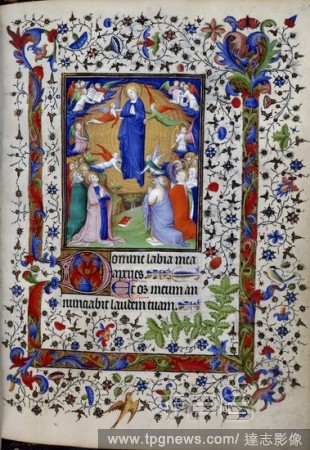 Domine labia mea
aperies.
Et os meum an
nunciabit laudem tuam.
www.tpgnews.com/ 達志影像